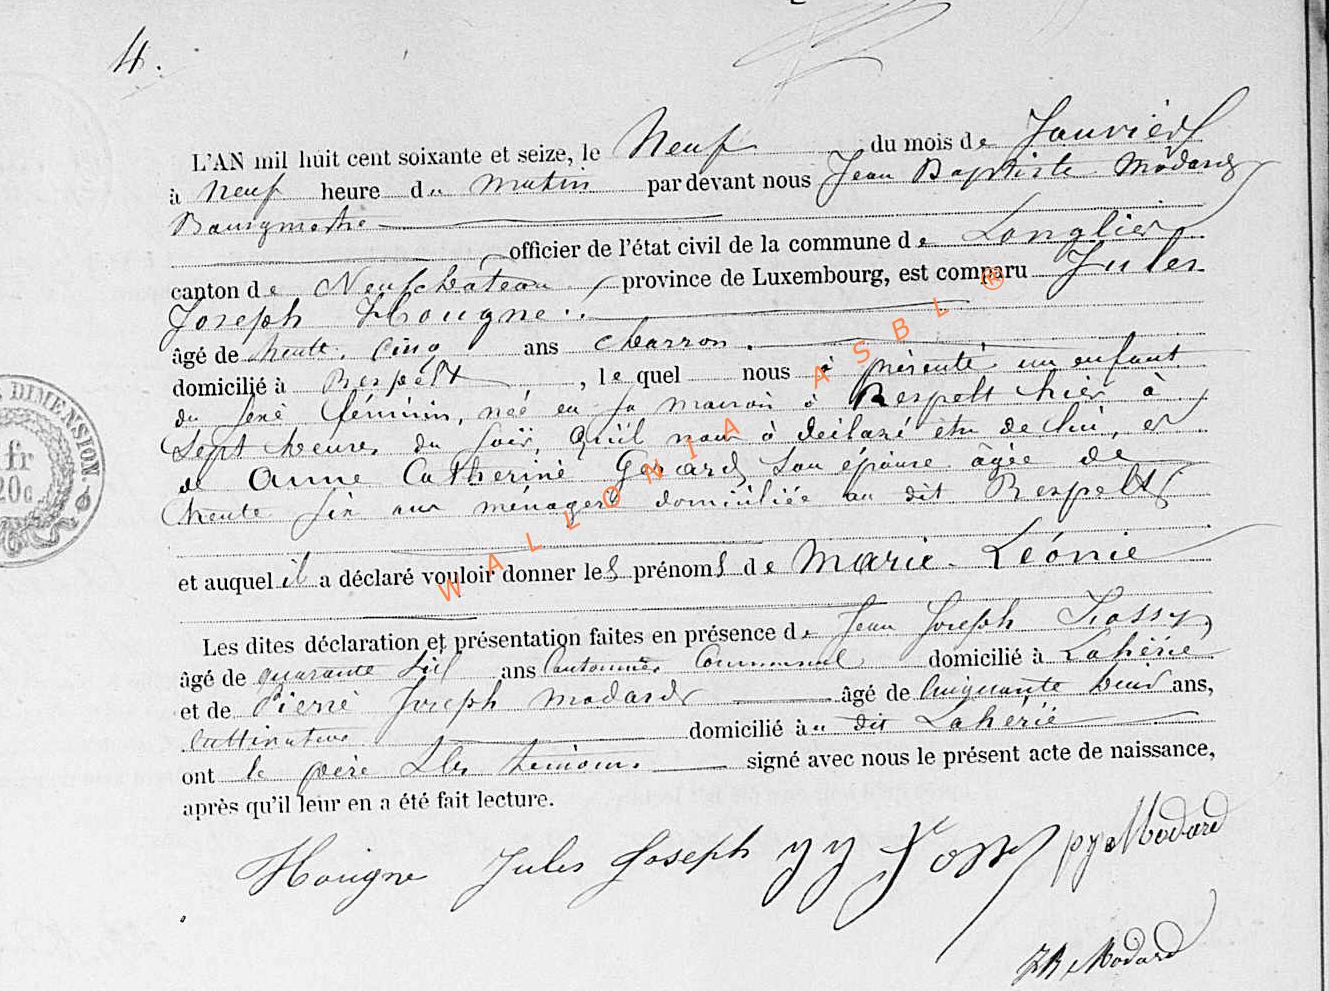 4.
L'AN mil huit cent soixante et seize, le Neuf du mois de Janvier
à neuf heure du matin par devant nous Jean Baptiste Modard
Bourgmestre
officier de l'état civil de la commune de Longlier
canton de Neufchâteau province de Luxembourg, est comparu Jules
Joseph Hougne
âgé de trente cinq ans charron
domicilié à Respelt, le quel nous à présenté un enfant
du sexe féminin, née en sa maison à Respelt hier à
Sept heures du soir, qu'il nous à déclaré être de lui, et
de Anne Catherine Gerard son épouse âgée de
trente six ans ménagère domiciliée au dit Respelt
et auquel il a déclaré vouloir donner les prénoms de Marie-Léonie
Les dites déclaration et présentation faites en présence de Jean Joseph
âgé de quarante ans Cantonnier Communal domicilié à Lahérie
et de Pierre Joseph Modard âgé de Cinquante ans,
Cultivateur domicilié au dit Lahérie
ont le père & les témoins signé avec nous le présent acte de naissance,
après qu'il leur en a été fait lecture.
Hougne Jules Joseph Modard
JB Modard
DIMENSION.
fr
20c.
WALLONIA ASBL ®